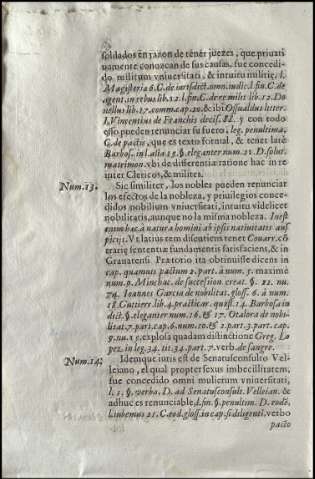 soldados en razon de tener juezes, que priuati
uamente conozcan de sus causas, fue concedi
do militum vniuersitati, & intuitu militię, l.
Magisteria 6. C. de iurisdict. omn. iudic. l. fin. C. de
agent. in rebus lib. 12. l. fin. C. de re milit. lib. 12. Do
nellus lib. 17. comm. cap. 20. & ibi Osualdus litter.
I. Vincentius de Franchis decis. 82. y con todo
esso pueden renunciar su fuero, leg. penultima,
C. de pactis, que es texto formal, & tenet latè
Barbos. in l. alia 15. §. eleganter num. 21. D. solut.
matrimon. vbi de differentiæ ratione hac in re
inter Clericos, & milites.
Num. 13. Sic similiter, los nobles pueden renunciar
los efectos de la nobleza, y priuilegios conce
didos nobilium vniuersitati, intuitu videlicet
nobilitatis, aunque no la misma nobleza. Inest
enim hæc à natura homini ab ipsis natiuitatis aus
picijs. Vt latius rem disceptiens tenet Couarr. cō
trariæ sententiæ fundamentis satisfaciens, & in
Granatensi Prætorio ita obtinuisse dicens in
cap. quamuis pactum 2. part. à num. 5. maximè
num. 9. Minchac. de succession. creat. §. 22. nu.
74. Ioannes Garcia de nobilitat. gloss. 6. à num.
18. Gutierr. lib. 4. practicar. quæst. 14. Barbosa in
dict. §. eleganter num. 16. & 17. Otalora de nobi-
litat. 7. part. cap. 6. num. 10. & 2. part. 3. part. cap.
9. nu. 15. explosa quadam distinctione Greg. Lo
pez in leg. 34. tit. 34. part. 7. verb. de sangre.
Num. 14. Idemque iuris est de Senatusconsulto Vel-
leiano, el qual propter sexus imbecillitatem,
fue concedido omni mulierum vniuersitati,
l. 1. §. verba. D. ad Senatusconsult. Velleian. &
adhuc es renunciable, l. fin. §. penultim. D. eodē,
l. iubemus 21. C. eod. gloss. in cap. si diligenti, verbo
pacto